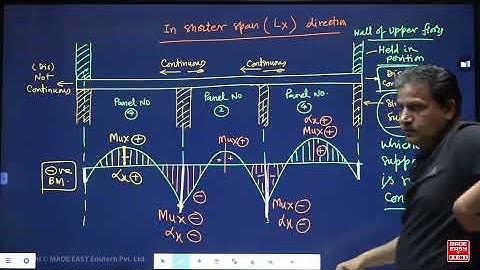 In shorter span (Lx) direction
Wall of upper floor
Held in
position
(Dis)
Not
Continuous
Continuous
Continuous
Panel No
④
Panel No
②
Panel No
④
αx ⊕
Mux ⊕
Mux ⊕
Mux ⊕
αx ⊕
⊖ve
BM.
⊖
Mux ⊖
αx ⊖
⊖
Mux ⊖
αx ⊖
which
suppo
is n
Con
© MADE EASY Edutech Pvt. Ltd.
MADE
EASY